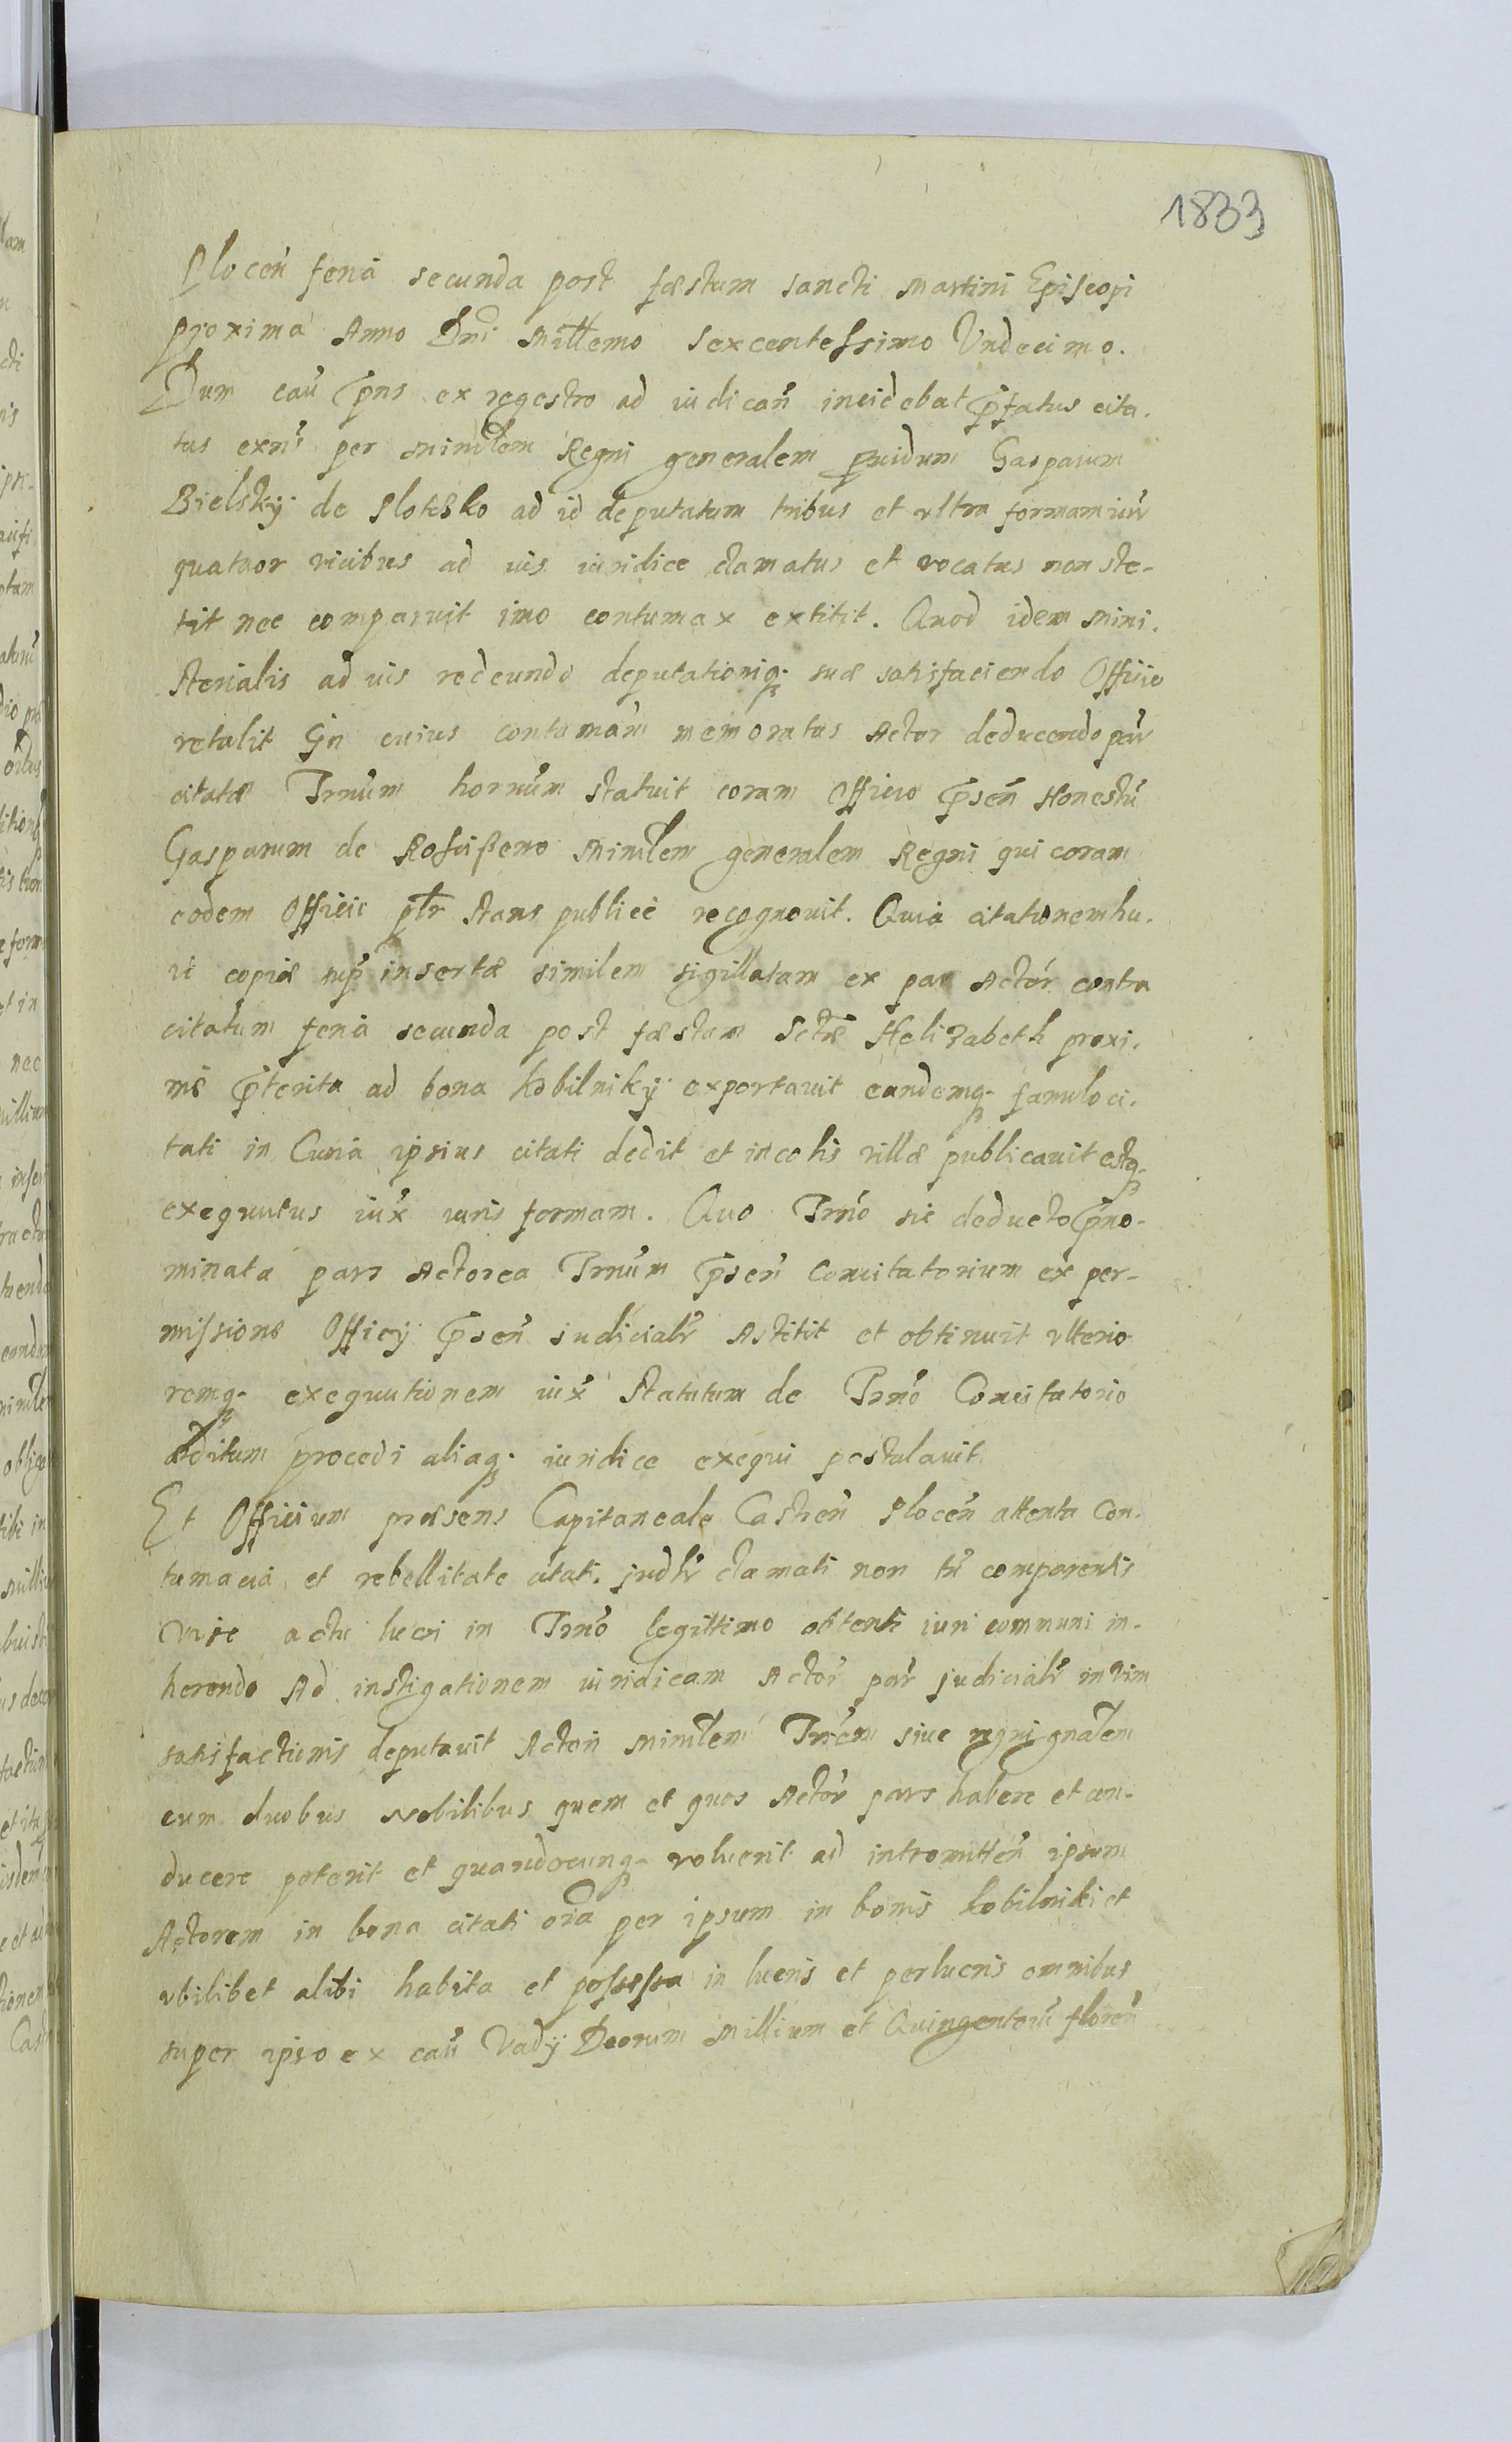 1833
Plocen̄ feria secunda post fæstum sancti Martini Episcopi
proxima Anno Dni Millemo Sexcentessimo Undecimo.
Dum cau p̄ns ex regestro ad iudican̄ incidebat p̄fatus cita.
tus exns per minrlem Regni generalem prvidum Gasparum
Bielskÿ de Plotsko ad id deputatum tribus et vltra formam iur
quatuor vicibus ad ius iuridice clamatus et vocatus non ste-
tit nec comparuit imo contumax extitit. Quod idem Mini.
sterialis ad ius redeundo deputationiq. suæ satisfaciendo Officio
retulit In cuius contumam memoratus Actor deducendo par
citatæ Trnum hornum statuit coram Officio p̄sen̄ Honestu
Gasparum de Rosciszeno Minrlem generalem Regni qui coram
eodem Officio ptr stans publicè recognouit. Quia citationem hu.
ic copiæ sup insertæ similem sigillatam ex par Actor contra
citatum feria secunda post fæstum Sctæ Helizabeth proxi.
me p̄terita ad bona Kobilnikÿ exportauit eandemq. famulo ci.
tati in Curia ipsius citati dedit et incolis villæ publicauit estq.
exequutus iux iuris formam. Quo Trno sic deducto p̄no-
minata pars Actorea Trnum p̄sen̄ Concitatorium ex per-
missione Officÿ p̄sen̄ iudicialr Astitit et obtinuit vlterio
remq. exequutionem iux statutum de Trno Concitatorio
æditum procedi aliaq. iuridice exequi postulauit.
Et Officium præsens Capitaneale Castren̄ Plocen̄ attenta Con.
tumacia et rebellitate citati. judlr clamati non tn comparentis
Viso actu lucri in Trno legittimo obtenti iuri communi in-
herendo Ad instigationem iuridicam Actor par judicialr in vim
satisfactionis deputauit Actori minrlem Trrem siue regni gnalem
cum duobus Nobilibus quem et quos Actor pars habere et con-
ducere poterit et quandocunq. voluerit ad intromitten̄ ipsum
Actorem in bona citati oia per ipsum in bonis kobilniki et
vbilibet alibi habita et possessa in lucris et perlucris omnibus
super ipso ex cau Vadÿ Duorum Millium et Quingentoru floren̄